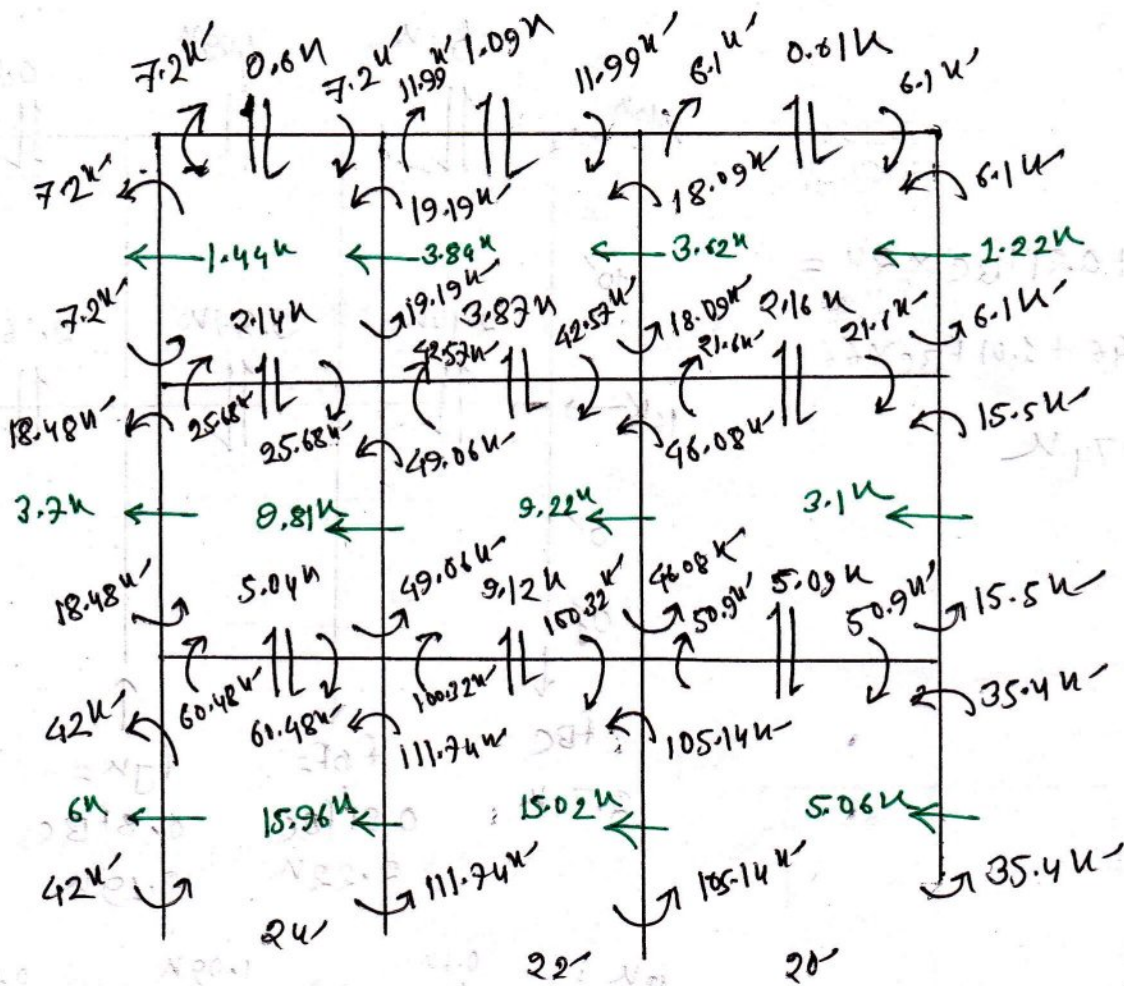 7.2k' 0.6k 7.2k' 11.99k' 1.09k 11.99k' 6.1k' 0.61k 6.1k'
7.2k' 19.19k' 18.09k' 6.1k'
1.44k 3.84k 3.62k 1.22k
7.2k' 2.14k 19.19k' 3.87k 42.57k' 18.09k' 2.16k 21.6k' 6.1k'
42.57k' 21.6k'
18.48k' 25.68k' 25.68k' 49.06k' 46.08k' 15.5k'
3.7k 9.81k 9.22k 3.1k
18.48k' 5.04k 49.06k' 9.12k 100.32k' 46.08k' 50.9k' 5.09k 50.9k' 15.5k'
42k' 60.48k' 60.48k' 100.32k' 111.74k' 105.14k' 35.4k'
6k 15.96k 15.02k 5.06k
42k' 111.74k' 105.14k' 35.4k'
24' 22' 20'